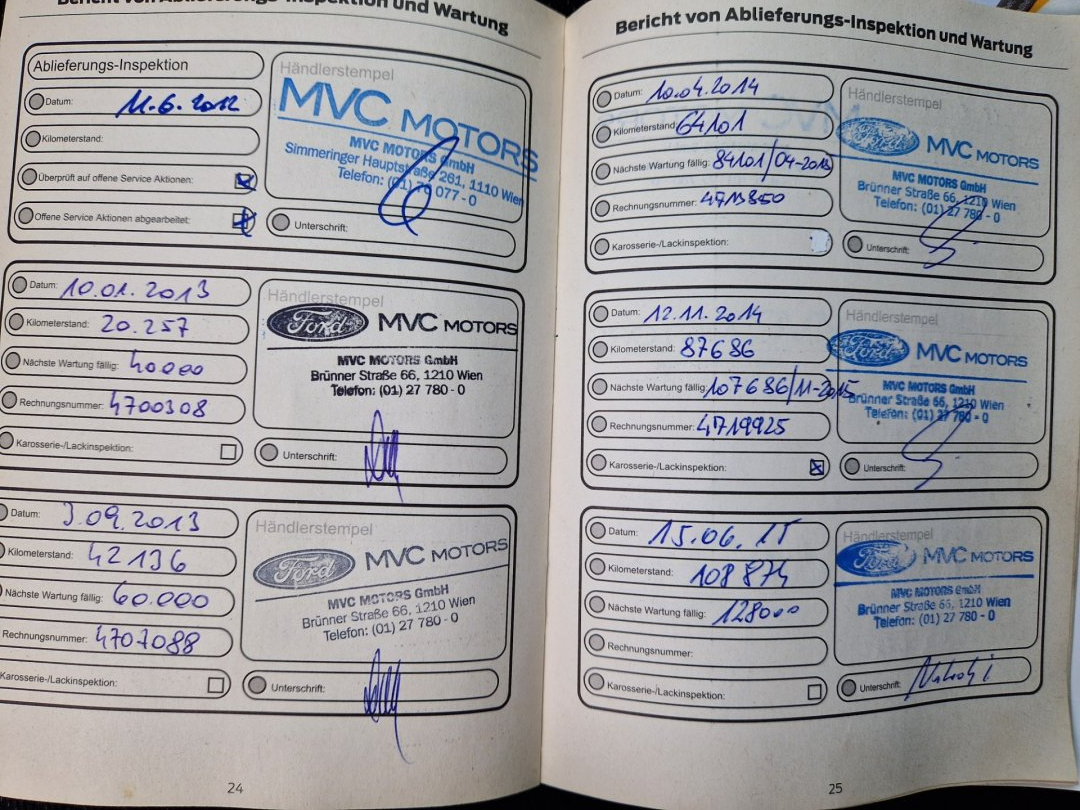 Bericht von Ablieferungs-Inspektion und Wartung
Ablieferungs-Inspektion
Datum: 11.6.2012
Kilometerstand:
Überprüft auf offene Service Aktionen:
Offene Service Aktionen abgearbeitet:
Händlerstempel
MVC MOTORS
MVC MOTORS GmbH
Simmeringer Hauptstraße 261, 1110 Wien
Telefon: (01) 70 077-0
Unterschrift:
Datum: 10.01.2013
Kilometerstand: 20.257
Nächste Wartung fällig: 40000
Rechnungsnummer: 4700308
Karosserie-/Lackinspektion:
Händlerstempel
Ford MVC MOTORS
MVC MOTORS GmbH
Brünner Straße 66, 1210 Wien
Telefon: (01) 27 780 - 0
Unterschrift:
Datum: 3.09.2013
Kilometerstand: 42136
Nächste Wartung fällig: 60.000
Rechnungsnummer: 4707088
Karosserie-/Lackinspektion:
Händlerstempel
Ford MVC MOTORS
MVC MOTORS GmbH
Brünner Straße 66, 1210 Wien
Telefon: (01) 27 780 - 0
Unterschrift:
24
Bericht von Ablieferungs-Inspektion und Wartung
Datum: 10.04.2014
Kilometerstand: 64101
Nächste Wartung fällig: 84101/04-2015
Rechnungsnummer: 4713850
Karosserie-/Lackinspektion:
Händlerstempel
Ford MVC MOTORS
MVC MOTORS GmbH
Brünner Straße 66, 1210 Wien
Telefon: (01) 27 780 - 0
Unterschrift:
Datum: 12.11.2014
Kilometerstand: 87686
Nächste Wartung fällig: 107686/11-2015
Rechnungsnummer: 4719925
Karosserie-/Lackinspektion:
Händlerstempel
Ford MVC MOTORS
MVC MOTORS GmbH
Brünner Straße 66, 1210 Wien
Telefon: (01) 27 780 - 0
Unterschrift:
Datum: 15.06.15
Kilometerstand: 108874
Nächste Wartung fällig: 128000
Rechnungsnummer:
Karosserie-/Lackinspektion:
Händlerstempel
Ford MVC MOTORS
MVC MOTORS GmbH
Brünner Straße 66, 1210 Wien
Telefon: (01) 27 780 - 0
Unterschrift:
25